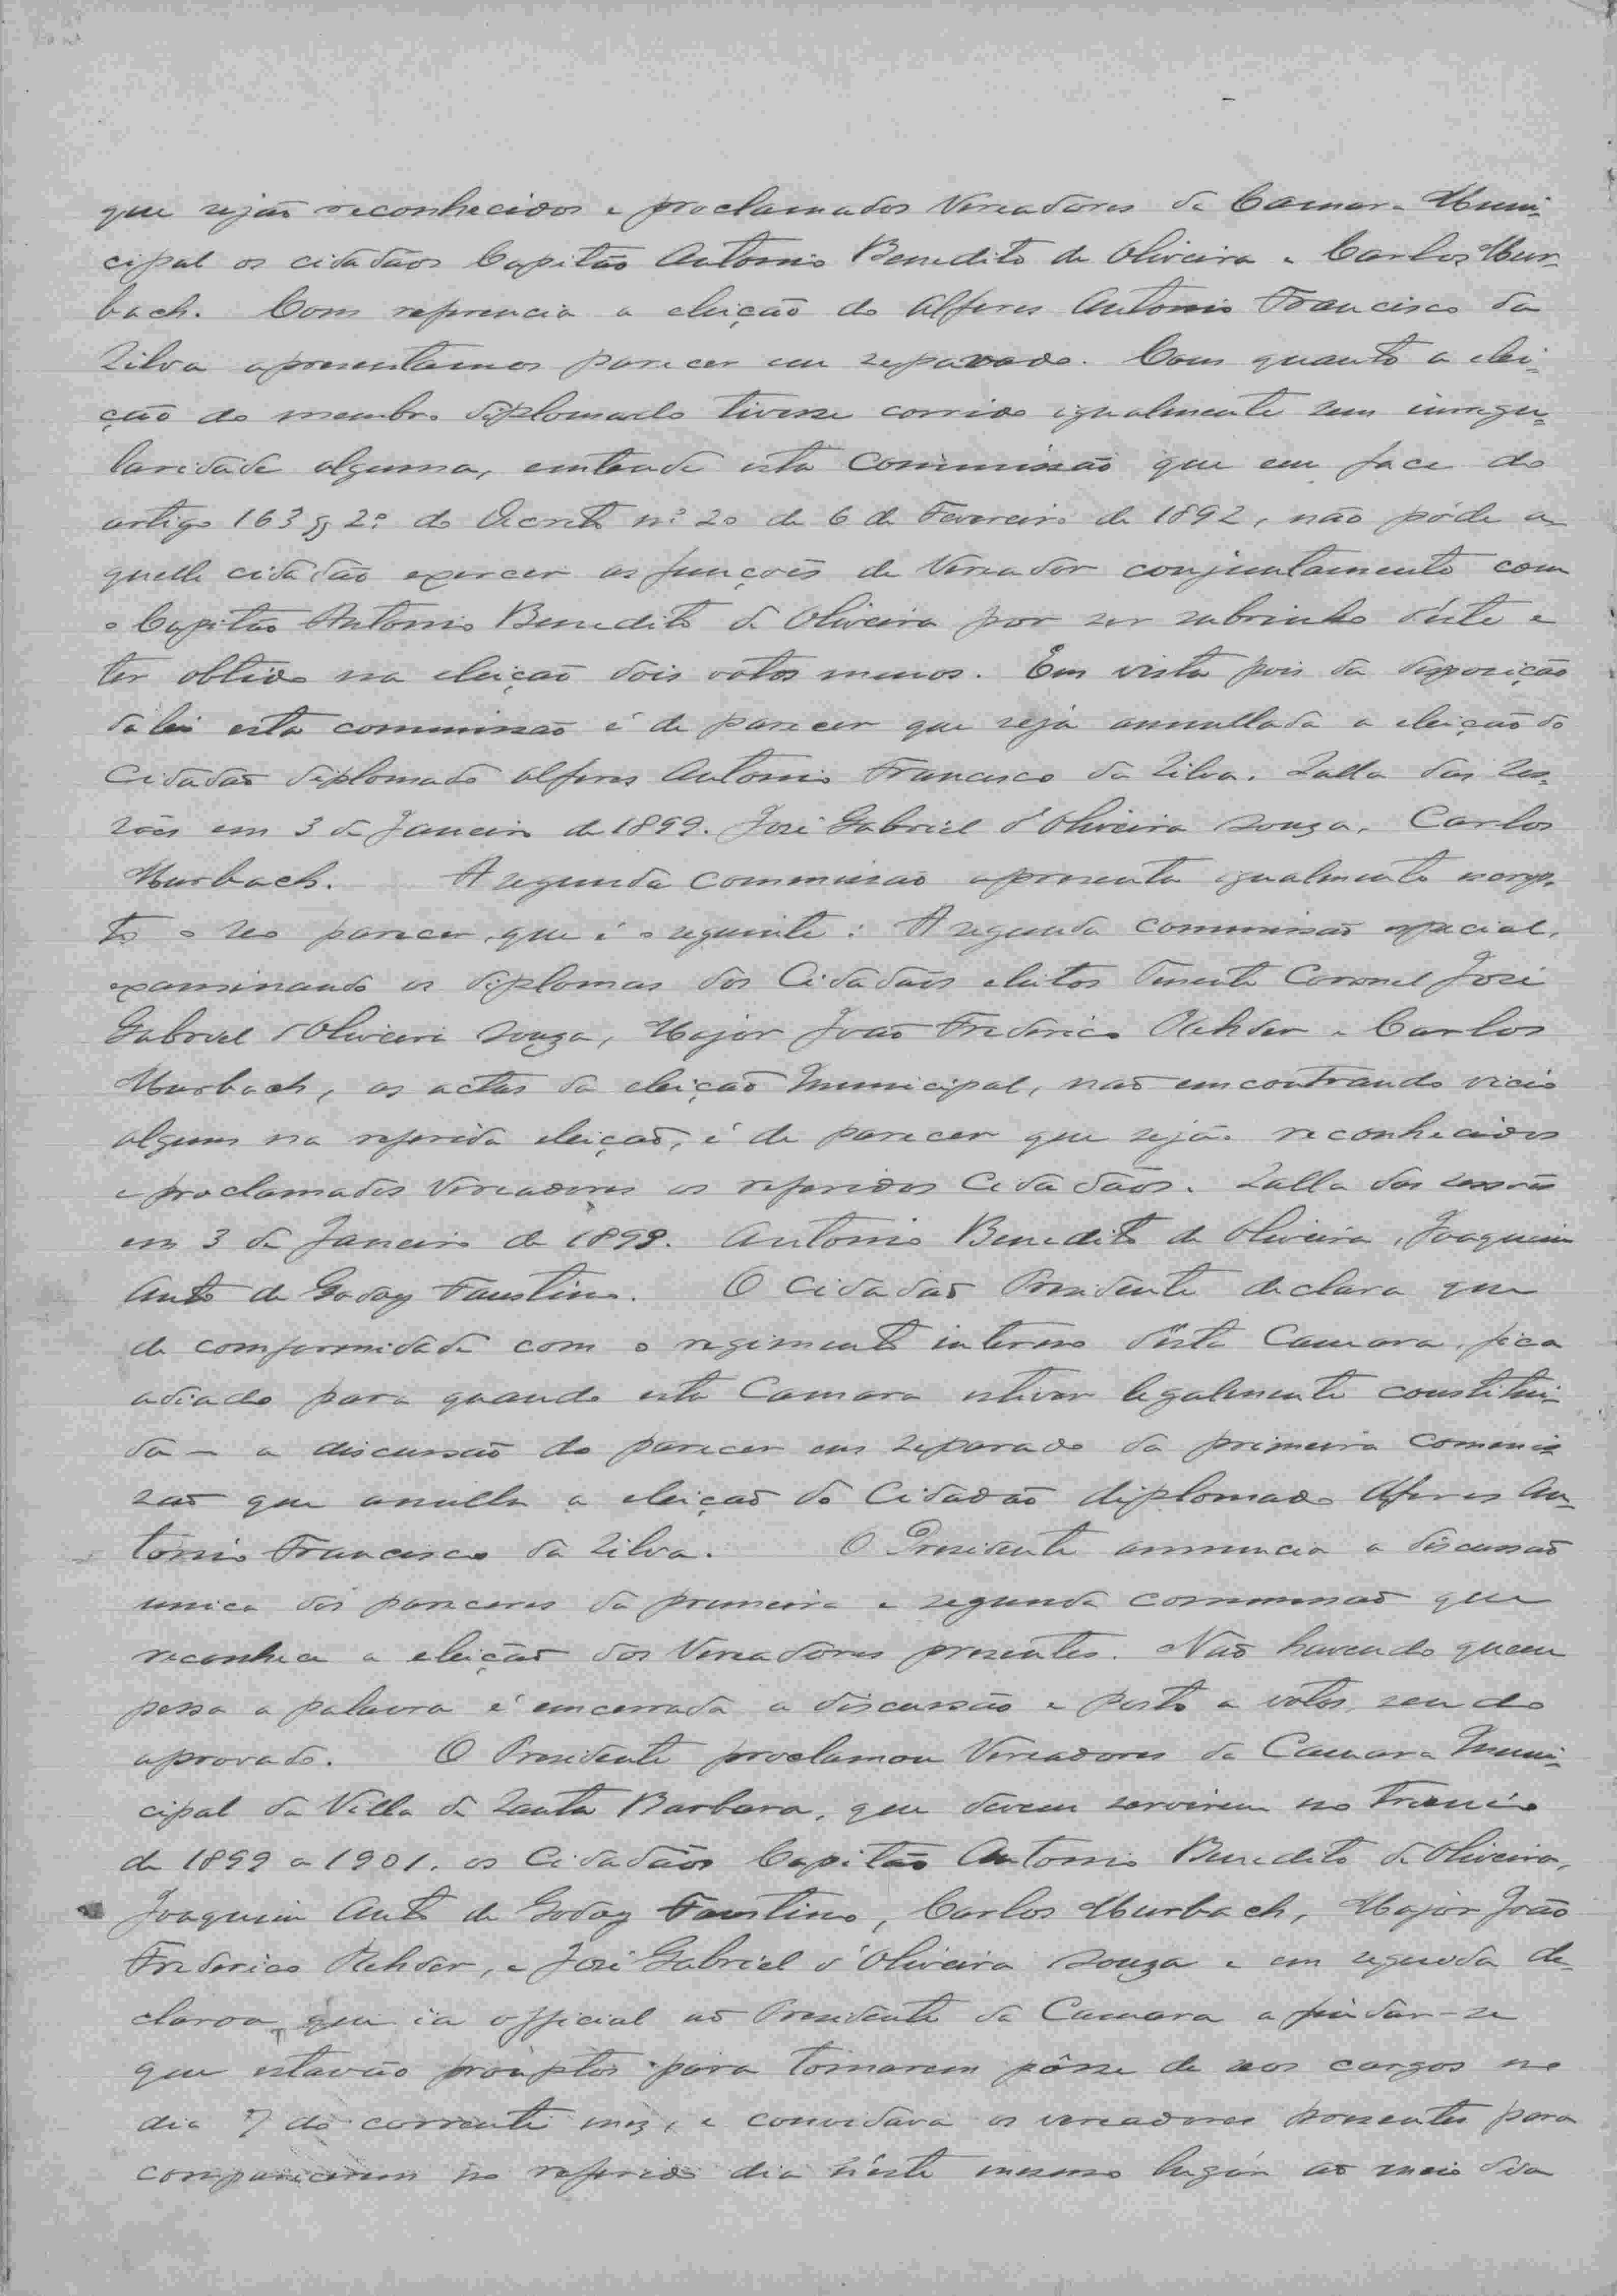 que sejão reconhecidos e proclamados Vereadores da Camara Muni-
cipal os cidadãos Capitão Antonio Benedito de Oliveira e Carlos Mur-
bach. Com referencia a eleição do Alferes Antonio Francisco da
Silva apresentamos parecer em separado. Com quanto a elei-
ção do membro diplomado tivesse corrido igualmente sem irregu-
laridade alguma, entende esta Commissão que em face do
artigo 163 § 2º do Decreto nº 20 de 6 de Fevereiro de 1892, não póde a-
quelle cidadão exercer as funções de Vereador conjuntamente com
o Capitão Antonio Benedito de Oliveira por ser subrinho déste e
ter obtido na eleição dois votos menos. Em vista pois da disposição
da lei esta commissão é de parecer que seja annullada a eleição do
Cidadão diplomado alferes Antonio Francisco da Silva. Salla das Ses-
sões em 3 de Janeiro de 1899. José Gabriel d'Oliveira Souza, Carlos
Murbach. A segunda Commissão apresenta igualmente escrip-
to o seo parecer, que é o seguinte: A segunda commissão especial,
examinando os diplomas dos Cidadãos eleitos Tenente Coronel José
Gabriel d'Oliveira Souza, Major João Frederico Rehder e Carlos
Murbach, as actas da eleição Municipal, não encontrando vicio
algum na referida eleição, é de parecer que sejão reconhecidos
e proclamados Vereadores os referidos Cidadãos. Salla das sessões
em 3 de Janeiro de 1899. Antonio Benedito de Oliveira, Joaquim
Antº de Godoy Faustino. O Cidadão Presidente declara que
de comformidade com o regimento interno désta Camara, fica
adiado para quando esta Camara estiver legalmente constitui-
da - a discussão do parecer em separado da primeira Commis
são que anulla a eleição do Cidadão diplomado Alferes An-
tonio Francisco da Silva. O Presidente annuncia a discussão
unica dos pareceres da primeira e segunda commissão que
reconhece a eleição dos Vereadores presentes. Não havendo quem
pessa a palavra é emcerrada a discussão e posto a votos, sendo
aprovado. O Presidente proclamou Vereadores da Camara Muni-
cipal da Villa de Santa Barbara, que devem servirem no Trienio
de 1899 a 1901, os Cidadãos Capitão Antonio Benedito de Oliveira,
Joaquim Antº de Godoy Faustino, Carlos Murbach, Major João
Frederico Rehder, e José Gabriel d'Oliveira Souza e em seguida de-
clarou que ia official ao Presidente da Camara a findar-se
que estavão promptos para tomarem pôsse de seos cargos no
dia 7 do corrente mez, e convidava os vereadores presentes para
comparecerem no referido dia néste mesmo lugár ao meio dia